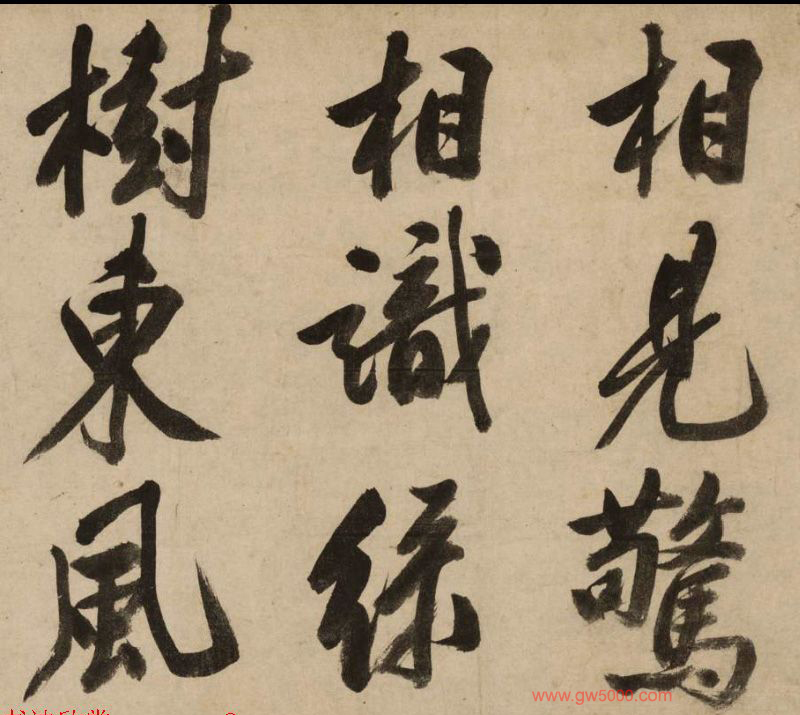 相見驚
相識綠
樹東風
www.gw5000.com